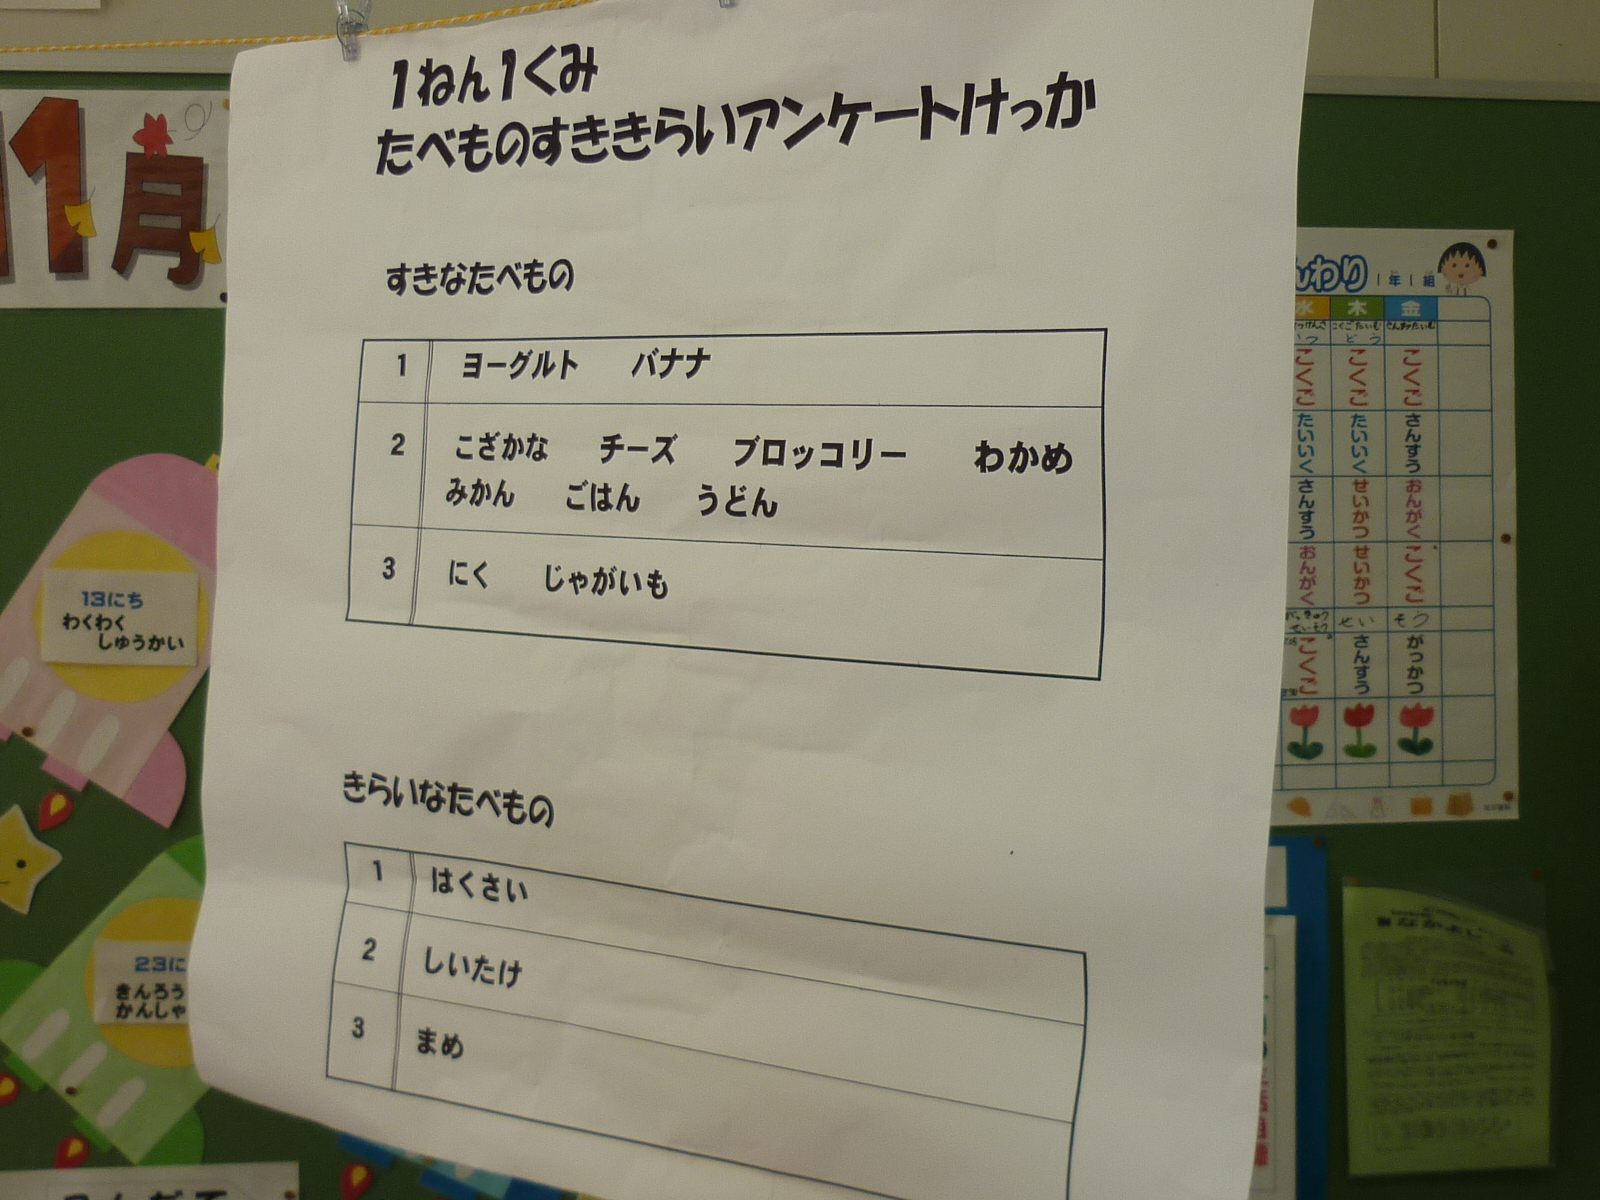 1ねん1くみ
たべものすききらいアンケートけっか
すきなたべもの
1 ヨーグルト バナナ
2 こざかな チーズ ブロッコリー わかめ
みかん ごはん うどん
3 にく じゃがいも
きらいなたべもの
1 はくさい
2 しいたけ
3 まめ
11月
13にち
わくわく
しゅうかい
23に
きんろう
かんしゃ
んわり 1年1組
水 木 金
こくご こくご こくご
たいいく たいいく さんすう
さんすう せいかつ おんがく
おんがく せいかつ こくご
せい そう
こくご さんすう がっかつ